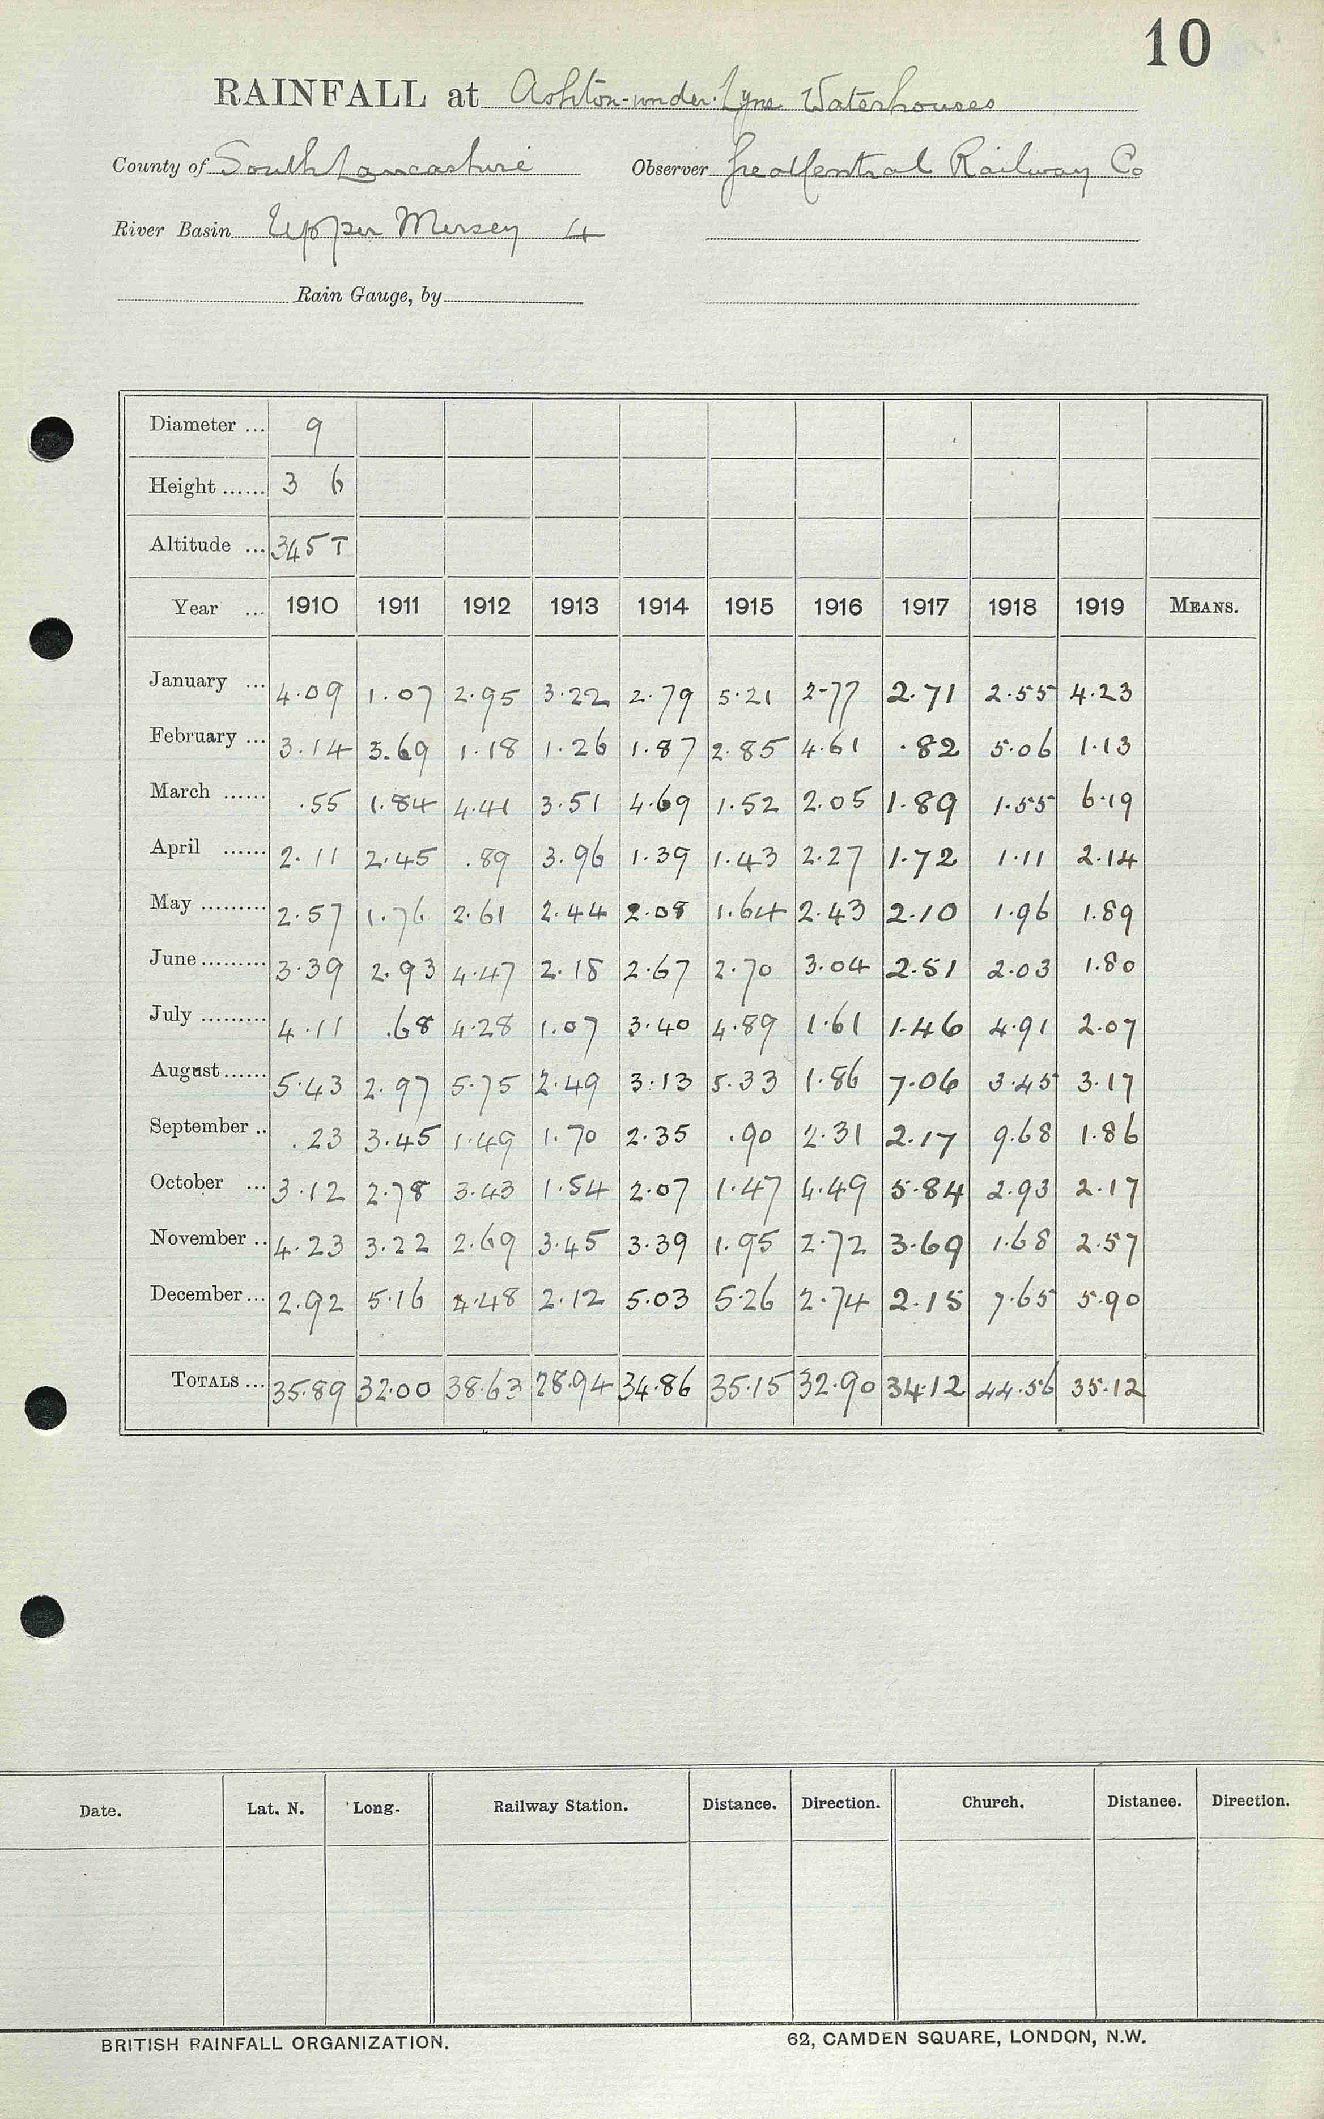 10
RAINFALL at Ashton-under-Lyne Waterhouses
County of South Lancashire Observer Great Central Railway Co
River Basin Upper Mersey 4
Rain Gauge, by
Diameter ... 9
Height ...... 3 6
Altitude ... 345 T
Year ... 1910 1911 1912 1913 1914 1915 1916 1917 1918 1919 MEANS.
January ... 4.09 1.07 2.95 3.22 2.79 5.21 2.77 2.71 2.55 4.23
February ... 3.14 3.69 1.18 1.26 1.87 2.85 4.61 .82 5.06 1.13
March ...... .55 1.84 4.41 3.51 4.69 1.52 2.05 1.89 1.55 6.19
April ...... 2.11 2.45 .89 3.96 1.39 1.43 2.27 1.72 1.11 2.14
May ......... 2.57 1.76 2.61 2.44 2.08 1.64 2.43 2.10 1.96 1.89
June ......... 3.39 2.93 4.47 2.18 2.67 2.70 3.04 2.51 2.03 1.80
July ......... 4.11 .68 4.28 1.07 3.40 4.89 1.61 1.46 4.91 2.07
August ...... 5.43 2.97 5.75 2.49 3.13 5.33 1.86 7.06 3.45 3.17
September .. .23 3.45 1.49 1.70 2.35 .90 2.31 2.17 9.68 1.86
October ... 3.12 2.78 3.43 1.54 2.07 1.47 4.49 5.84 2.93 2.17
November .. 4.23 3.22 2.69 3.45 3.39 1.95 2.72 3.69 1.68 2.57
December ... 2.92 5.16 4.48 2.12 5.03 5.26 2.74 2.15 7.65 5.90
TOTALS ... 35.89 32.00 38.63 28.94 34.86 35.15 32.90 34.12 44.56 35.12
Date. Lat. N. Long. Railway Station. Distance. Direction. Church. Distance. Direction.
BRITISH RAINFALL ORGANIZATION. 62, CAMDEN SQUARE, LONDON, N.W.